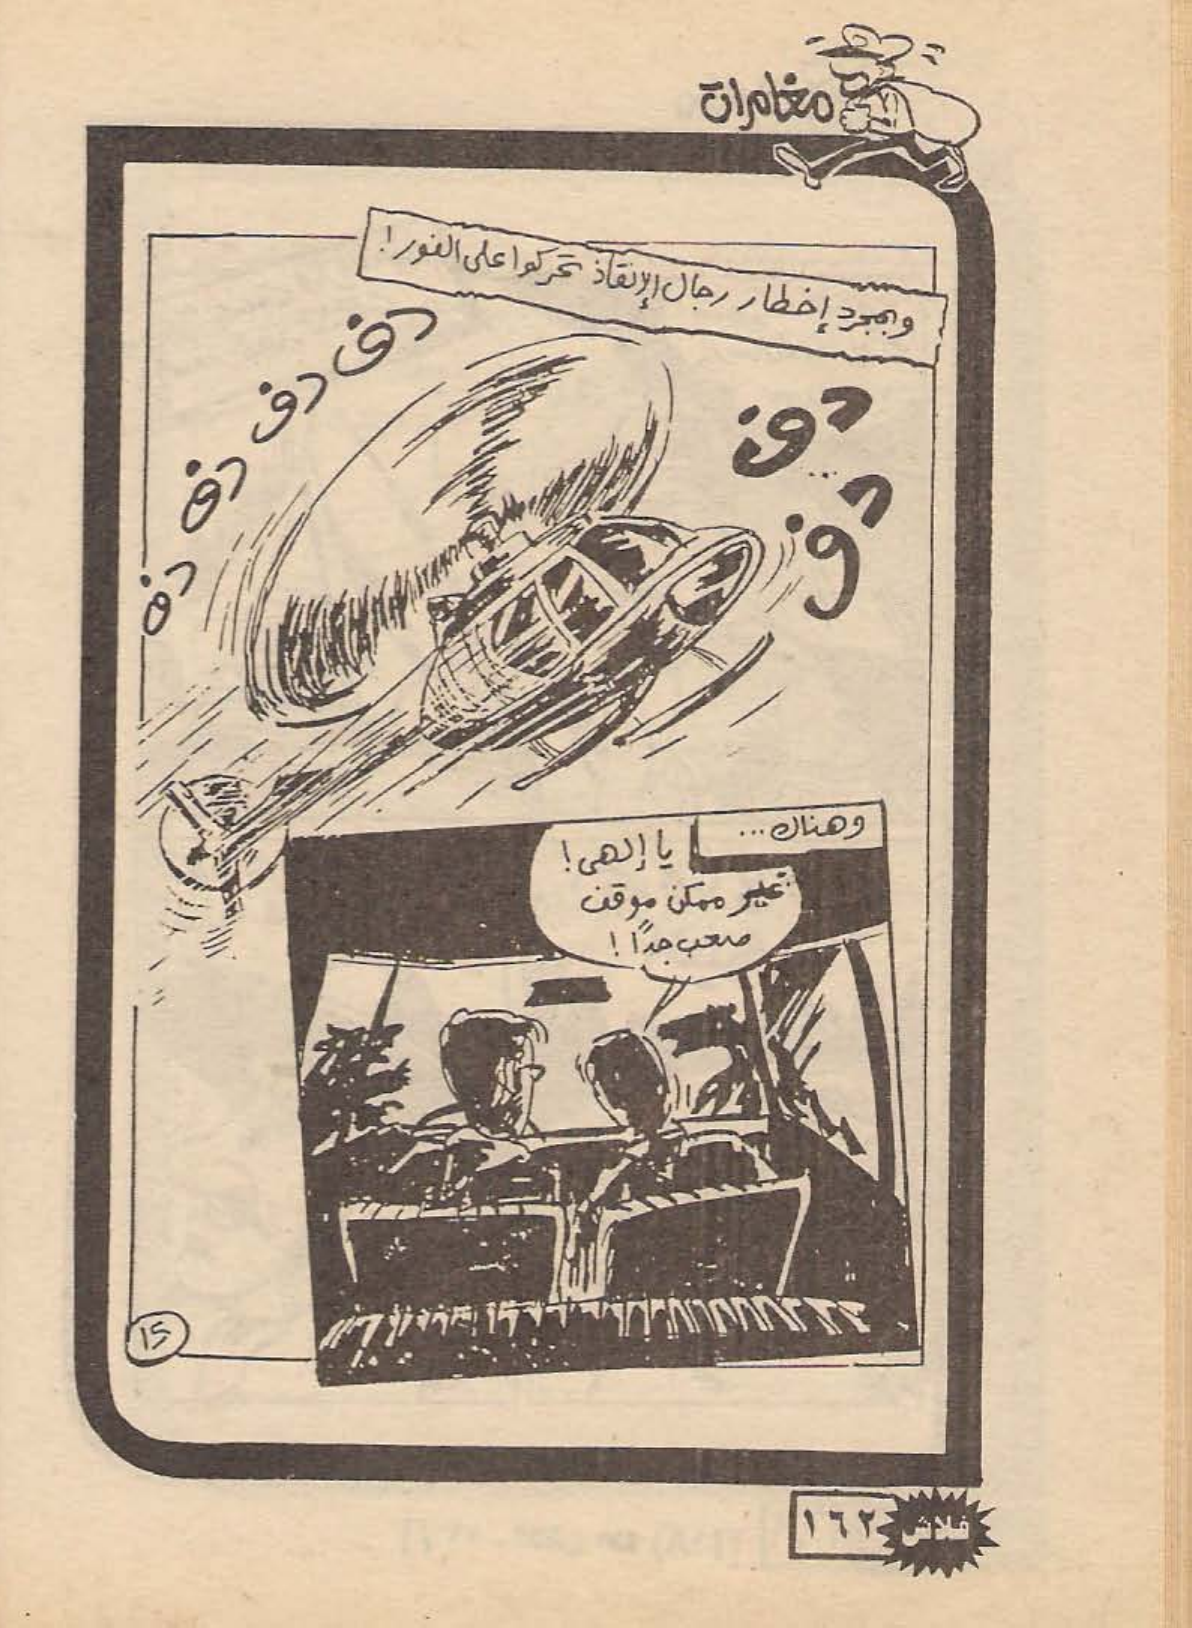 مغامرات
وبمجرد إخطار رجال الإنقاذ تحركوا على الفور!
دف
...
دف
دف
دف
دف
دف
وهناك...
يا إلهى!
غير ممكن موقف
صعب جدًا!
١٥
فلاش
١٦٢